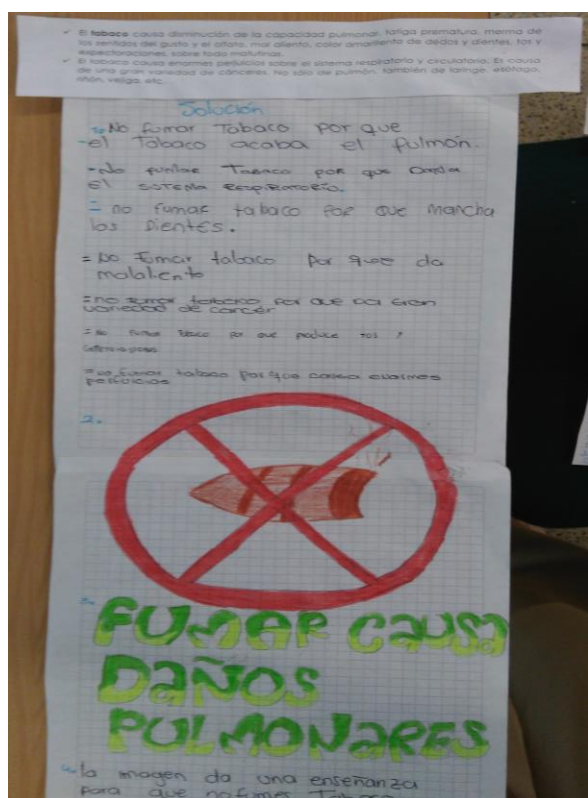 ✓ El tabaco causa disminución de la capacidad pulmonar, fatiga prematura, merma de
los sentidos del gusto y el olfato, mal aliento, color amarillento de dedos y dientes, tos y
expectoraciones, sobre todo matutinas.
✓ El tabaco causa enormes perjuicios sobre el sistema respiratorio y circulatorio. Es causa
de una gran variedad de cánceres. No sólo de pulmón, también de laringe, esófago,
riñón, vejiga, etc.
Solución
No fumar Tabaco por que
-el Tabaco acaba el pulmón.
-No fumar Tabaco por que Daña
el sistema Respiratorio.
= no fumar tabaco por que mancha
los Dientes.
= No fumar tabaco por que da
malaliento
= no fumar tabaco por que da gran
variedad de cancér
= No fumar Tabaco por que produce tos y
= no fumar tabaco por que causa enormes
perjuicios
2.
3.
FUMAR CAUSA
DAÑOS
PULMONARES
4. la imagen da una enseñanza
para que no fumes Tabaco